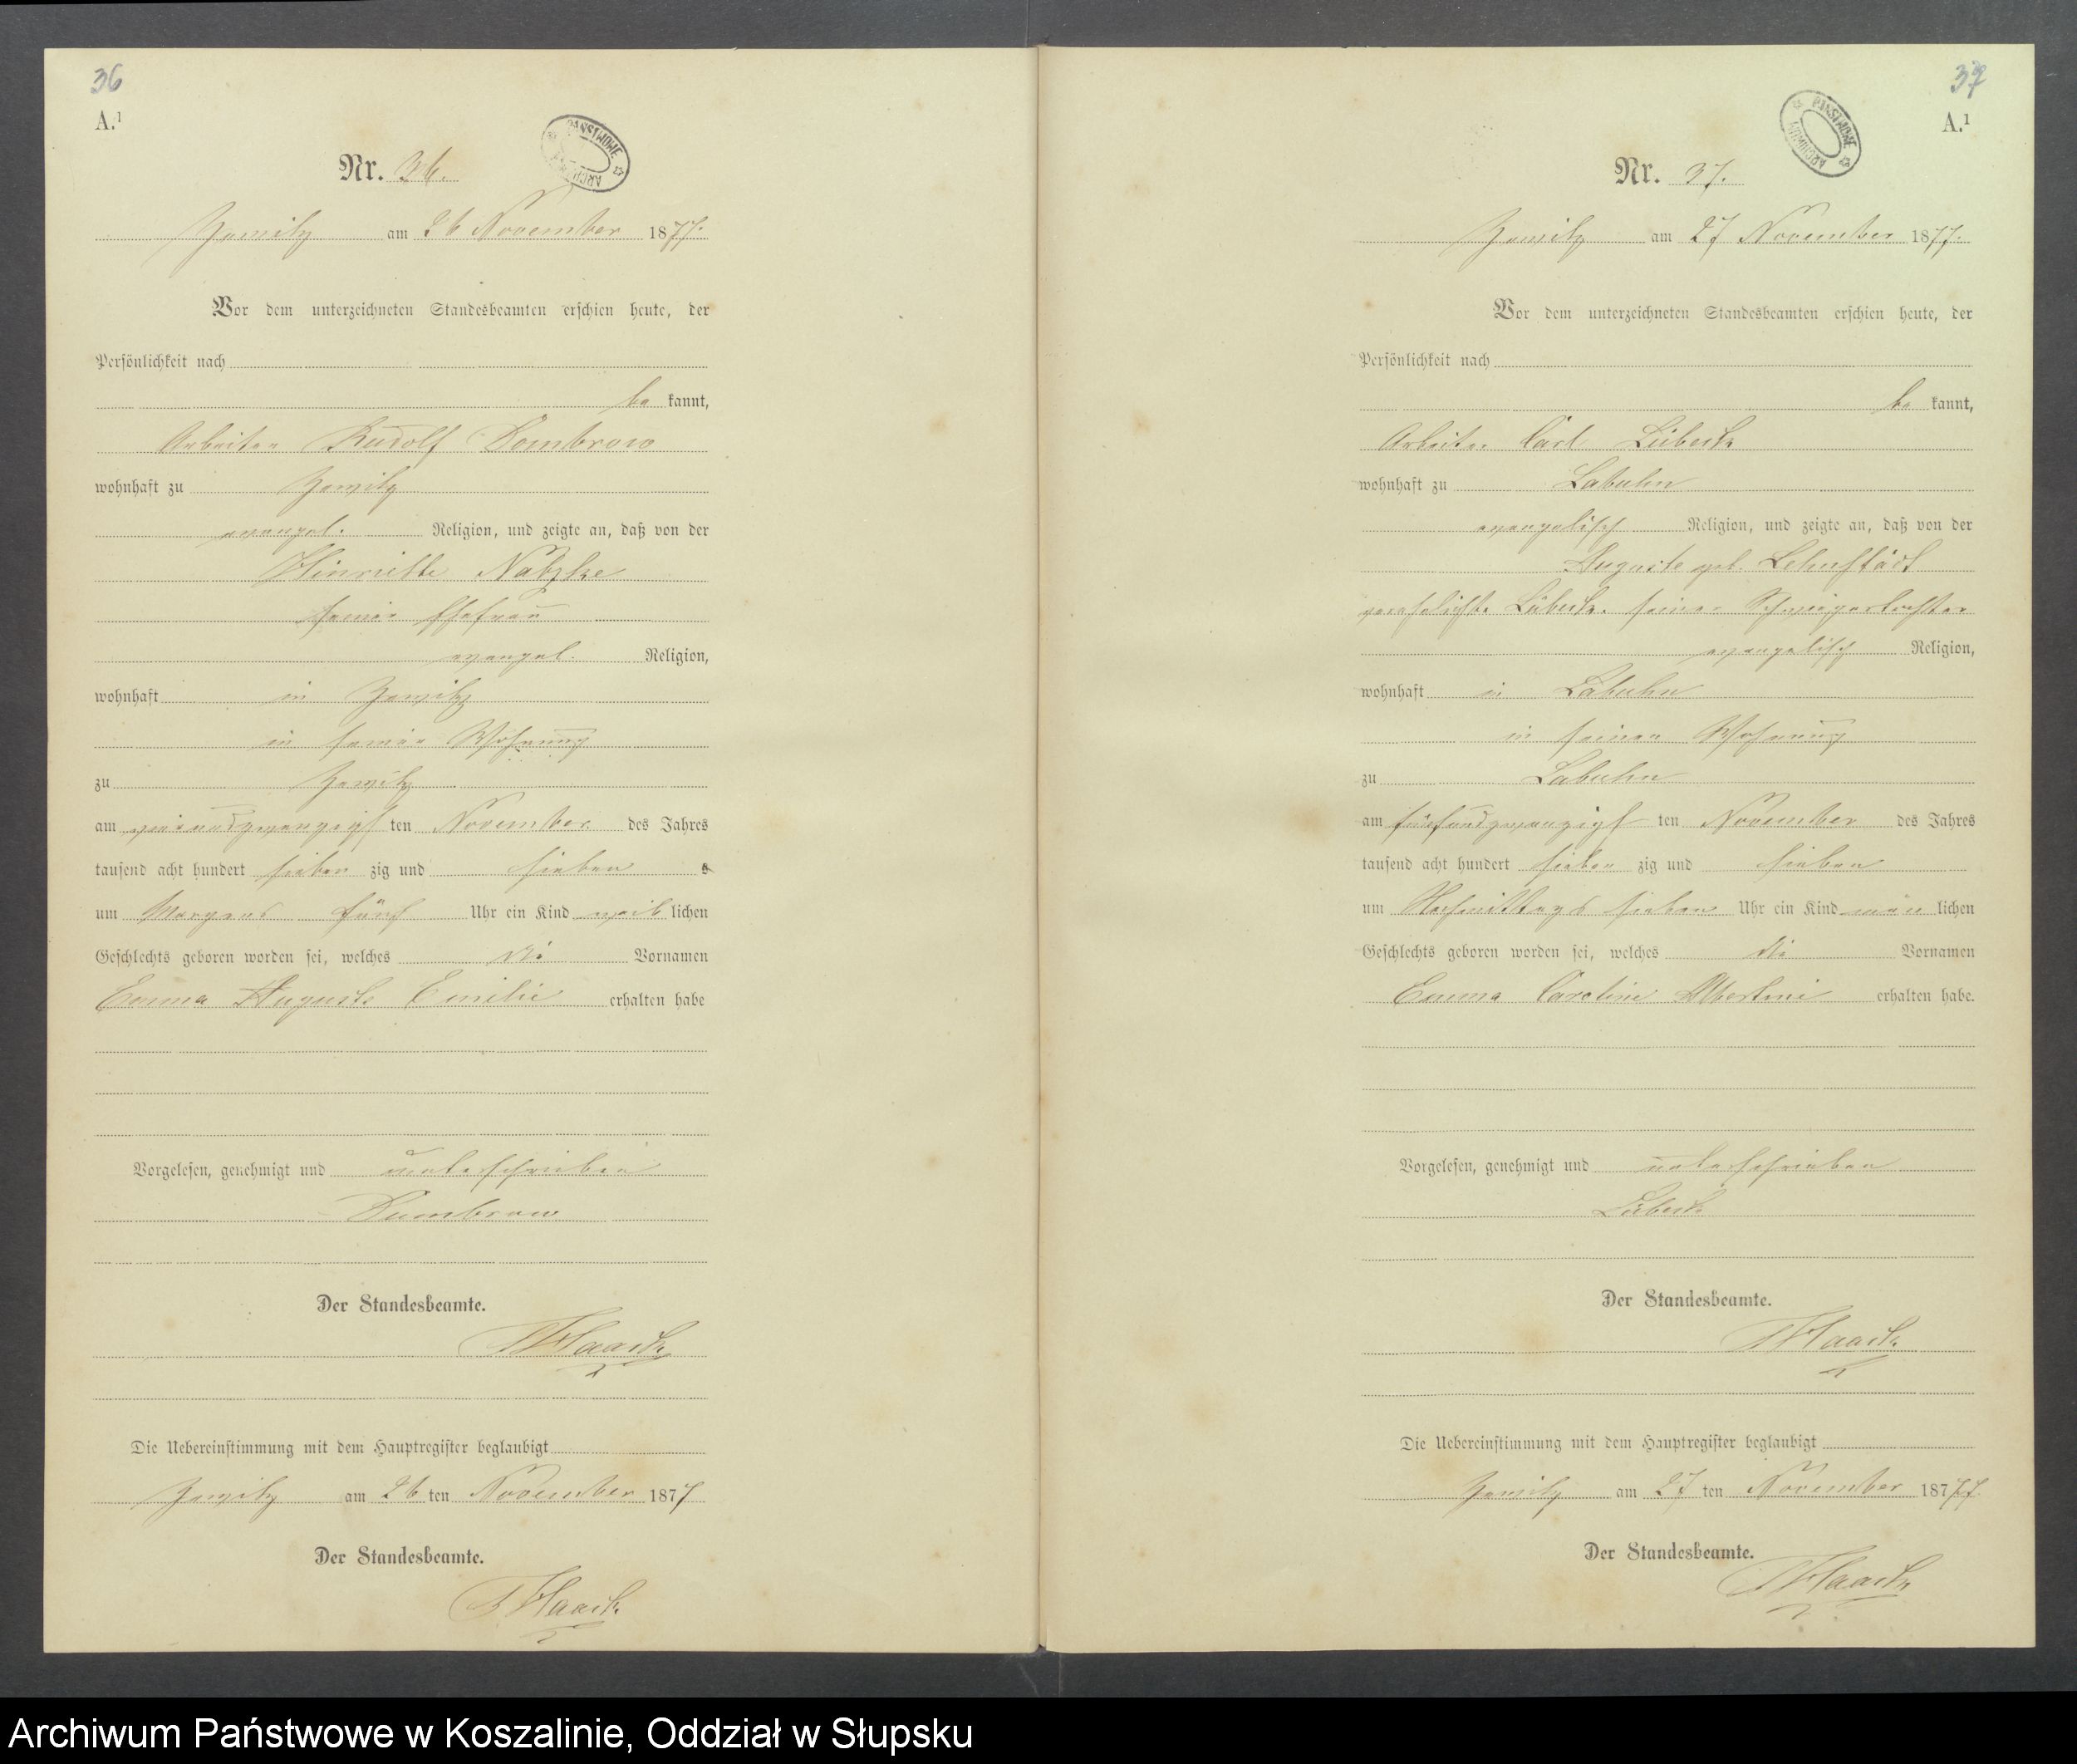 36
A.¹
PAŃSTWOWE
ARCHIWUM
Nr. 36.
Zewitz am 26 November 1877.
Vor dem unterzeichneten Standesbeamten erschien heute, der
Persönlichkeit nach
be kannt,
Arbeiter Rudolf Dombrow
wohnhaft zu Zewitz
evangel. Religion, und zeigte an, daß von der
Hinriette Natzke
seiner Ehefrau
evangel. Religion,
wohnhaft in Zewitz
in seiner Wohnung
zu Zewitz
am ten November des Jahres
tausend acht hundert sieben zig und sieben
um Morgens fünf Uhr ein Kind weib lichen
Geschlechts geboren worden sei, welches die Vornamen
Emma Auguste Emilie erhalten habe
Vorgelesen, genehmigt und unterschrieben
Dumbrow
Der Standesbeamte.
Haack
Die Uebereinstimmung mit dem Hauptregister beglaubigt
Zewitz am 26 ten November 1877
Der Standesbeamte.
Haack
37
A.¹
PAŃSTWOWE
ARCHIWUM
Nr. 37.
Zewitz am 27 November 1877.
Vor dem unterzeichneten Standesbeamten erschien heute, der
Persönlichkeit nach
be kannt,
Arbeiter Carl Lübeck
wohnhaft zu Labuhn
evangelisch Religion, und zeigte an, daß von der
Auguste geb. Lehnstädt
verehelichte Lübeck. seiner Schwigertochter
evangelisch Religion,
wohnhaft in Labuhn
in seiner Wohnung
zu Labuhn
am fünfundzwanzigs ten November des Jahres
tausend acht hundert sieben zig und sieben
um Nachmittags sieben Uhr ein Kind lichen
Geschlechts geboren worden sei, welches die Vornamen
Emma Caroline Albertine erhalten habe.
Vorgelesen, genehmigt und unterschrieben
Lübeck
Der Standesbeamte.
Haack
Die Uebereinstimmung mit dem Hauptregister beglaubigt
Zewitz am 27 ten November 1877
Der Standesbeamte.
Haack
Archiwum Państwowe w Koszalinie, Oddział w Słupsku